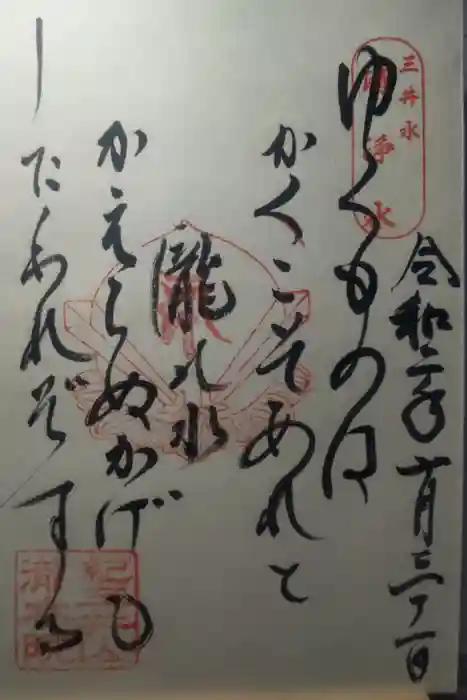 令和二年十月三十一日
三井水
清浄水
ゆくものは
かくこそあれと
瀧の水
かえらぬかげを
したわれぞする